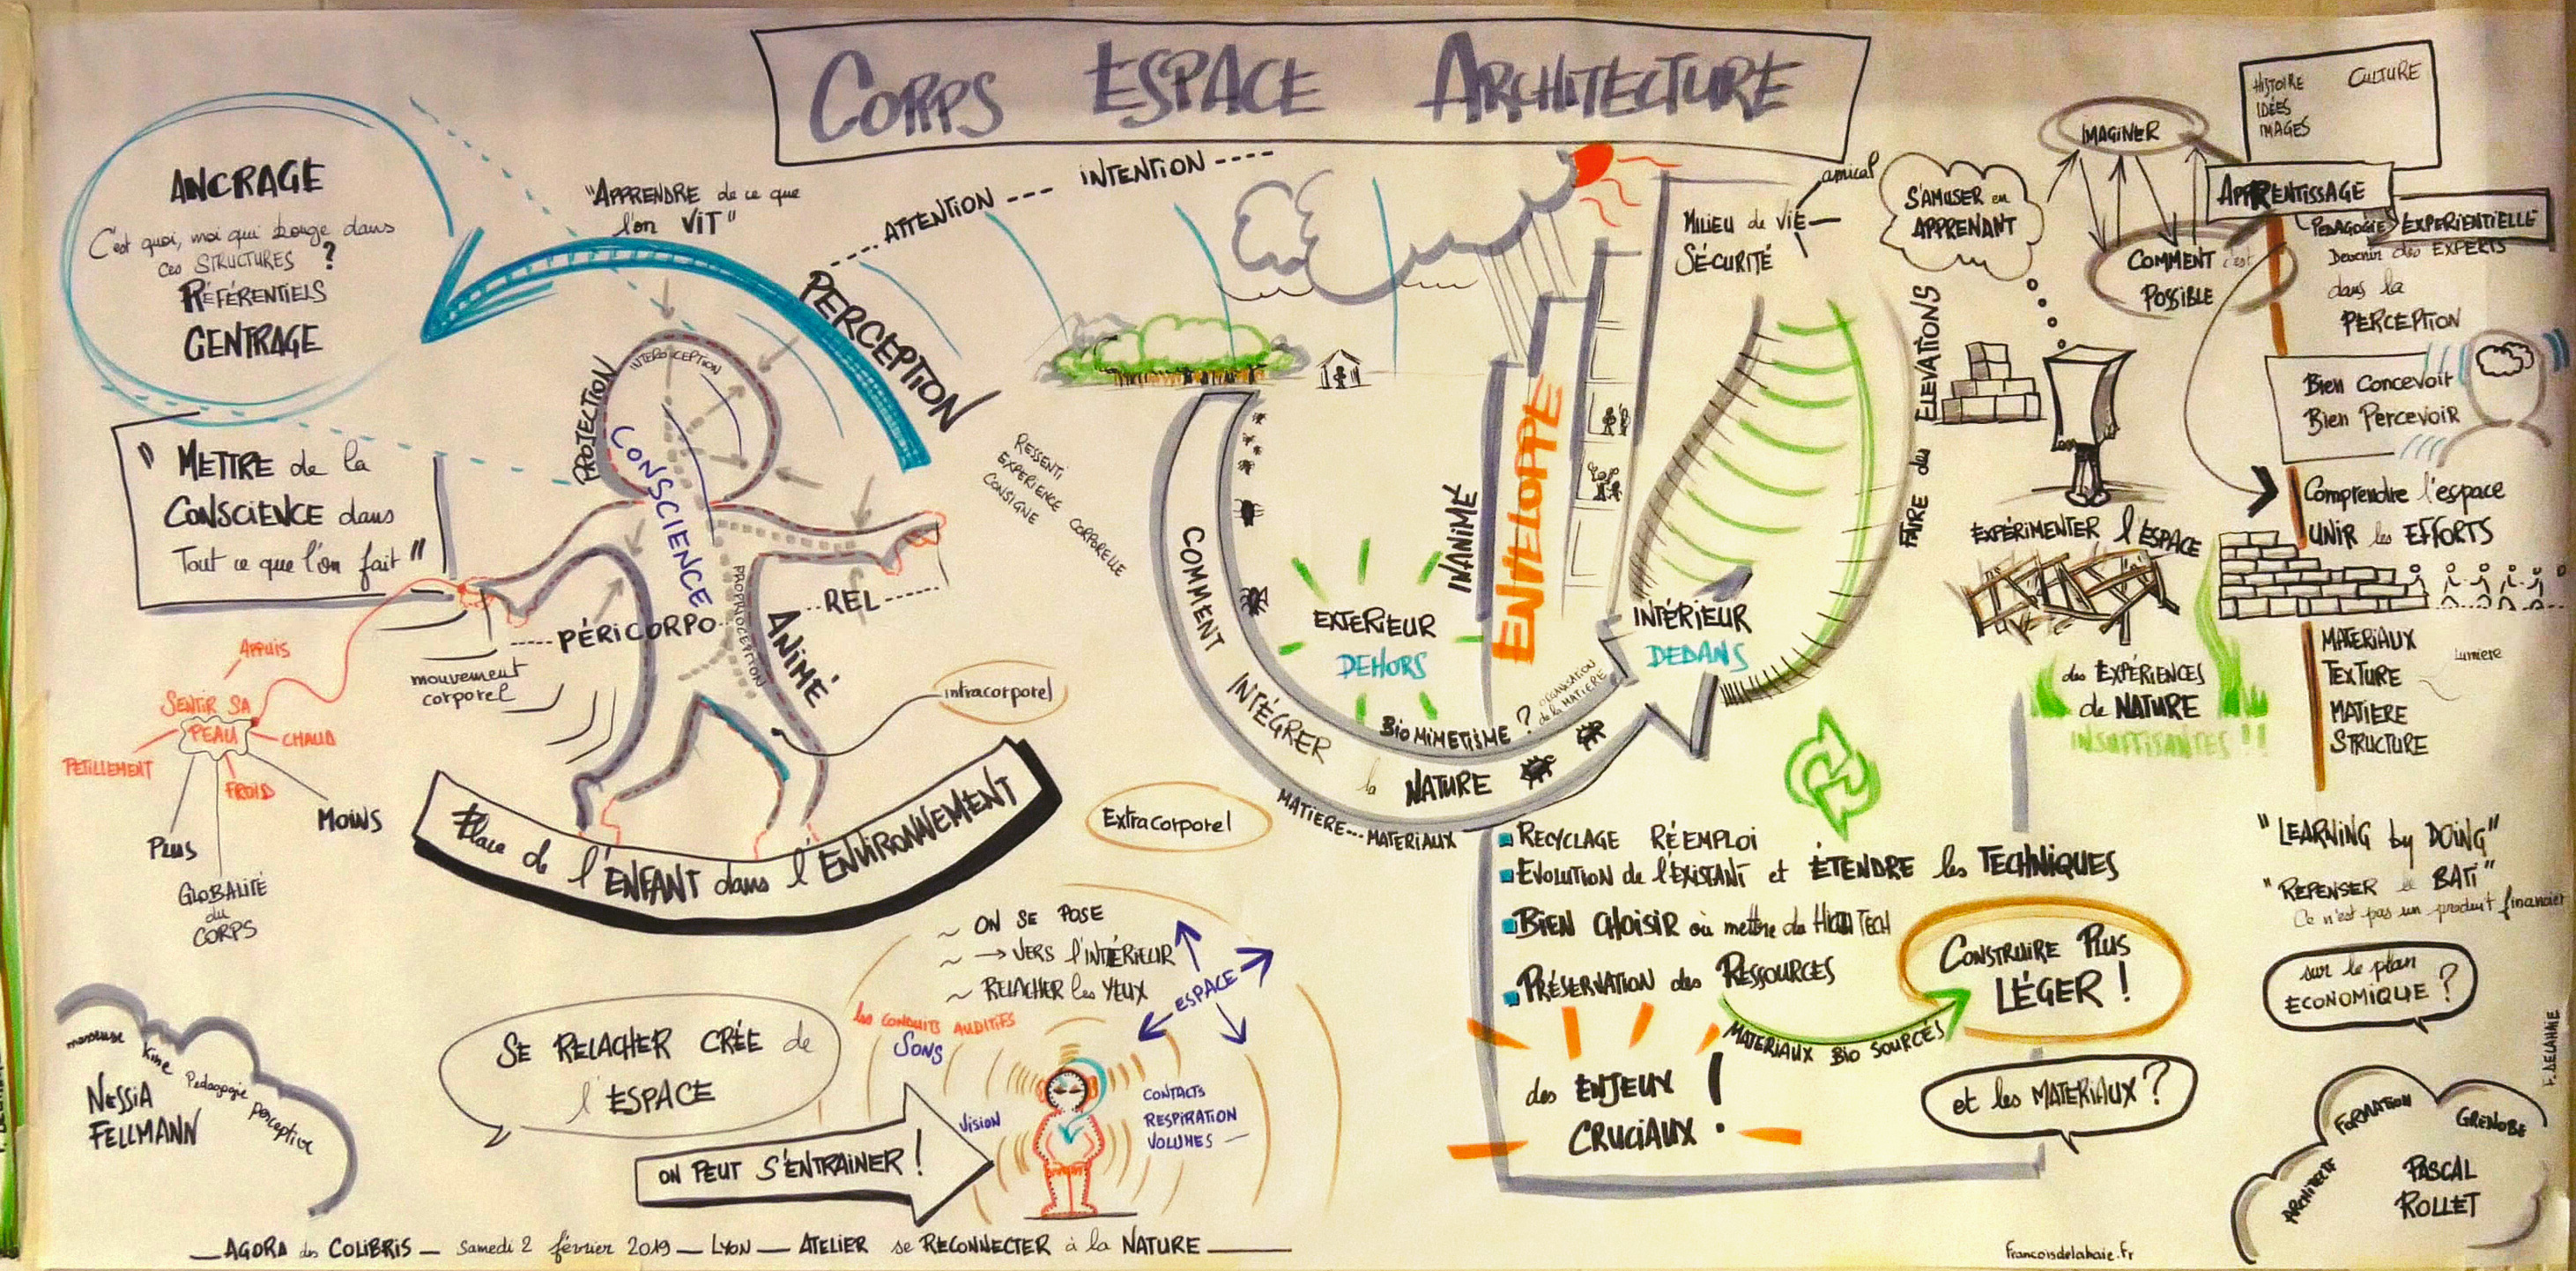 CORPS ESPACE ARCHITECTURE
ANCRAGE
C'est quoi, moi qui bouge dans
ces STRUCTURES ?
RÉFÉRENTIELS
CENTRAGE
"APPRENDRE de ce que
l'on VIT"
ATTENTION ---- INTENTION ----
PERCEPTION
"METTRE de la
CONSCIENCE dans
Tout ce que l'on fait"
PROJECTION
INTEROCEPTION
CONSCIENCE
PROPRIOCEPTION
PÉRICORPO
REL
ANIMÉ
mouvement
corporel
intracorporel
RESSENTI
EXPERIENCE CORPORELLE
CONSIGNE
APPUIS
SENTIR SA
PEAU
CHAUD
PETILLEMENT
FROID
PLUS
MOINS
GLOBALITÉ
du
CORPS
Place de l'ENFANT dans l'ENVIRONNEMENT
Extracorporel
~ ON SE POSE
~ → VERS l'INTÉRIEUR
~ RELACHER les YEUX
ESPACE
les CONDUITS AUDITIFS
SONS
VISION
CONTACTS
RESPIRATION
VOLUMES
SE RELACHER CRÉE de
l'ESPACE
ON PEUT S'ENTRAINER !
Kiné
Pédagogie
perceptive
NESSIA
FELLMANN
AGORA des COLIBRIS — Samedi 2 février 2019 — LYON — ATELIER se RECONNECTER à la NATURE
MILIEU de VIE
amical
SÉCURITÉ
INANIMÉ
ENVELOPPE
EXTERIEUR
DEHORS
INTÉRIEUR
DEDANS
COMMENT INTÉGRER la NATURE
BIOMIMETISME ?
ORGANISATION
de la MATIERE
MATIERE --- MATERIAUX
RECYCLAGE RÉEMPLOI
EVOLUTION de l'EXISTANT et ÉTENDRE les TECHNIQUES
BIEN CHOISIR où mettre du HIGH TECH
PRÉSERVATION des RESSOURCES
MATERIAUX BIO SOURCÉS
CONSTRUIRE PLUS
LÉGER !
des ENJEUX
CRUCIAUX !
et les MATERIAUX ?
S'AMUSER en
APPRENANT
IMAGINER
COMMENT c'est
POSSIBLE
FAIRE des ELEVATIONS
EXPÉRIMENTER l'ESPACE
des EXPÉRIENCES
de NATURE
INSUFFISANTES !!
HISTOIRE
IDÉES
IMAGES
CULTURE
APPRENTISSAGE
PEDAGOGIE EXPERIENTIELLE
Devenir des EXPERTS
dans la
PERCEPTION
Bien Concevoir
Bien Percevoir
Comprendre l'espace
UNIR les EFFORTS
MATERIAUX
TEXTURE
MATIERE
STRUCTURE
Lumiere
"LEARNING by DOING"
"REPENSER le BATI"
Ce n'est pas un produit financier
sur le plan
ÉCONOMIQUE ?
F. DELAHAIE
FORMATION
GRENOBLE
ARCHITECTE
PASCAL
ROLLET
Francoisdelahaie.fr